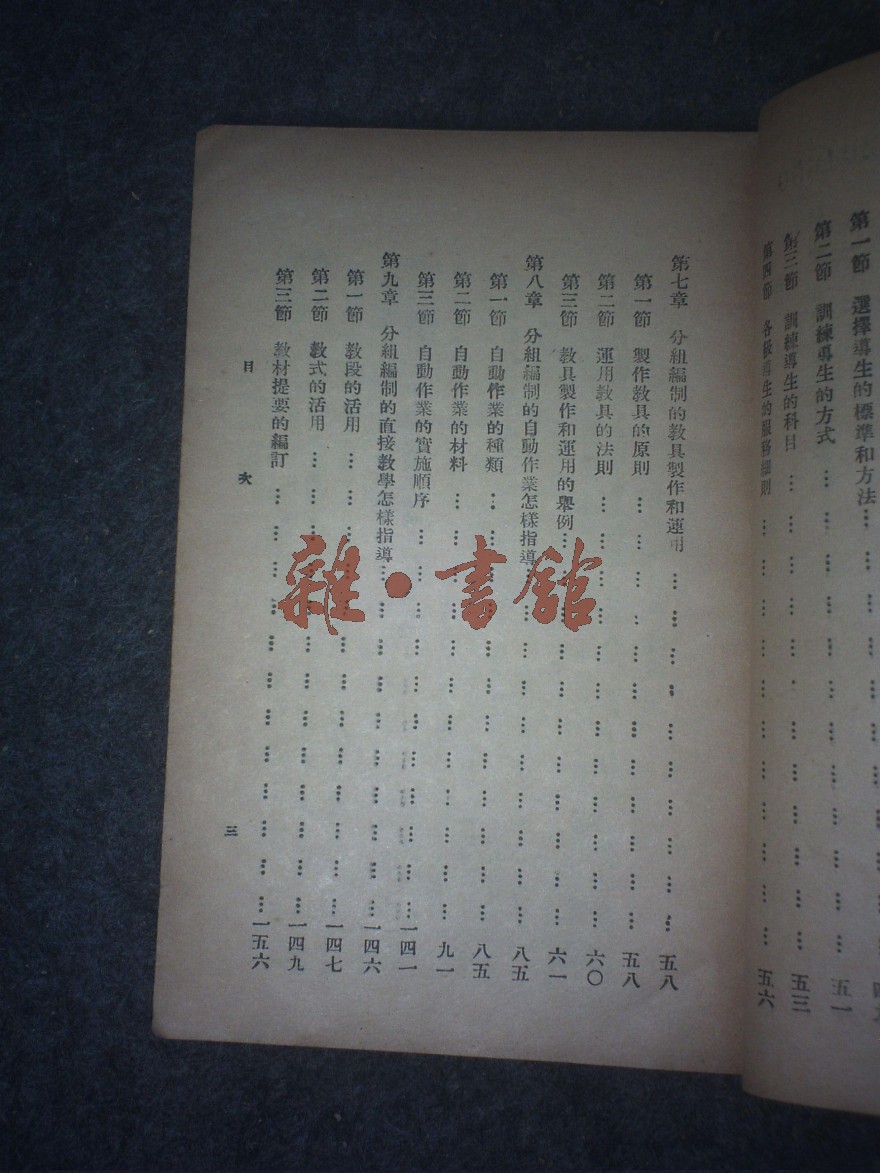 第一節 選擇導生的標準和方法
第二節 訓練導生的方式 … … … … … … … … 五一
第三節 訓練導生的科目 … … … … … … … … 五三
第四節 各級導生的服務細則 … … … … … … … … 五六
第七章 分組編制的教具製作和運用 … … … … … … … … 五八
第一節 製作教具的原則 … … … … … … … … 五八
第二節 運用教具的法則 … … … … … … … … 六〇
第三節 教具製作和運用的舉例 … … … … … … … … 六一
第八章 分組編制的自動作業怎樣指導 … … … … … … … … 八五
第一節 自動作業的種類 … … … … … … … … 八五
第二節 自動作業的材料 … … … … … … … … 九一
第三節 自動作業的實施順序 … … … … … … … … 一四一
第九章 分組編制的直接教學怎樣指導 … … … … … … … … 一四六
第一節 教段的活用 … … … … … … … … 一四七
第二節 教式的活用 … … … … … … … … 一四九
第三節 教材提要的編訂 … … … … … … … … 一五六
目次 三
雜·書館